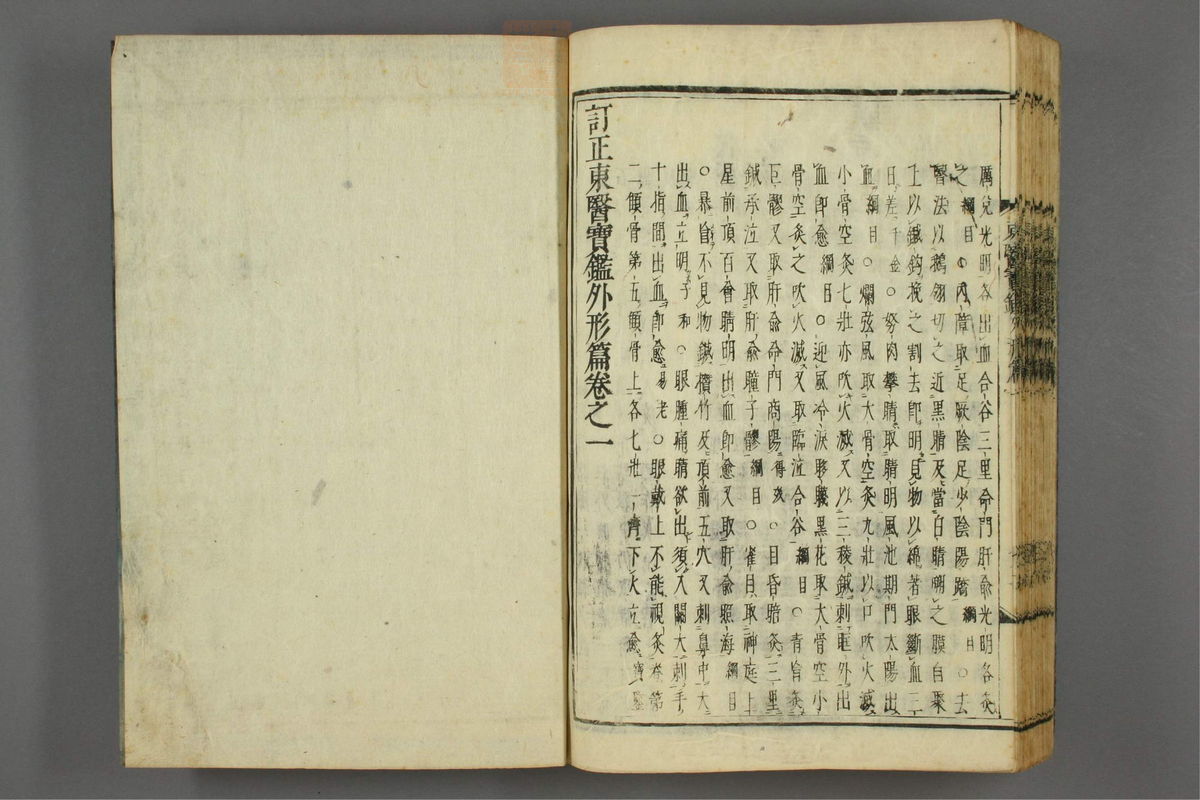 厲兌光明各出血合谷三里命門肝兪光明各灸
之綱目○內障取足厥陰足少陰陽蹻綱目○去
瞖法以鵝翎切之近黑睛及當白睛嚼之膜自聚
上以鍼鉤挽之割去卽明見物以綿著眼斷血三
日差千金○努肉攀睛取睛明風池期門太陽出
血綱目○爛弦風取大骨空灸九壯以口吹火滅
小骨空灸七壯亦吹火滅又以三稜鍼刺眶外出
血卽愈綱目○迎風冷淚眵䁾黑花取大骨空小
骨空灸之吹火滅又取臨泣合谷綱目○靑盲灸
巨髎又取肝兪命門商陽得效○目昏暗灸三里
鍼承泣又取肝兪瞳子髎綱目○雀目取神庭上
星前頂百會睛明出血卽愈又取肝兪照海綱目
○暴盲不見物鍼攢竹及頂前五穴又刺鼻中大
出血立明子和○眼腫痛睛欲出須八關大刺手
十指間出血卽愈易老○眼戴上不能視灸脊第
二顀骨第五顀骨上各七壯一齊下火立愈寶鑑
訂正東醫寶鑑外形篇卷之一